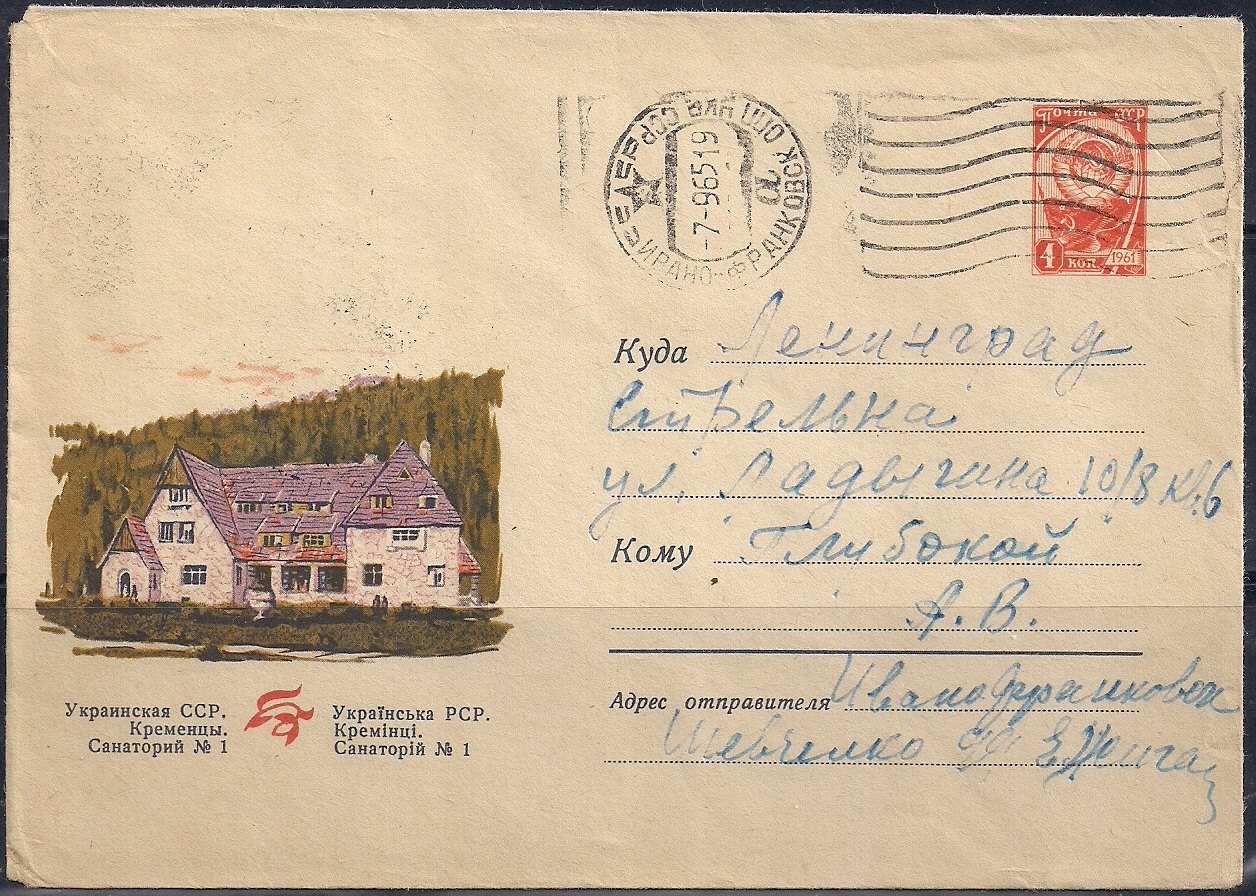 Почта СССР
4 коп. 1961
ИВАНО-ФРАНКОВСК ОПП
-7-9 65 19
Куда Ленинград
Стрельна
ул. Ладыгина 10/8 кв. 6
Кому Глубокой
А. В.
Адрес отправителя Иванофранковск
Шевченко
Украинская ССР.
Кременцы.
Санаторий № 1
Українська РСР.
Кремінці.
Санаторій № 1